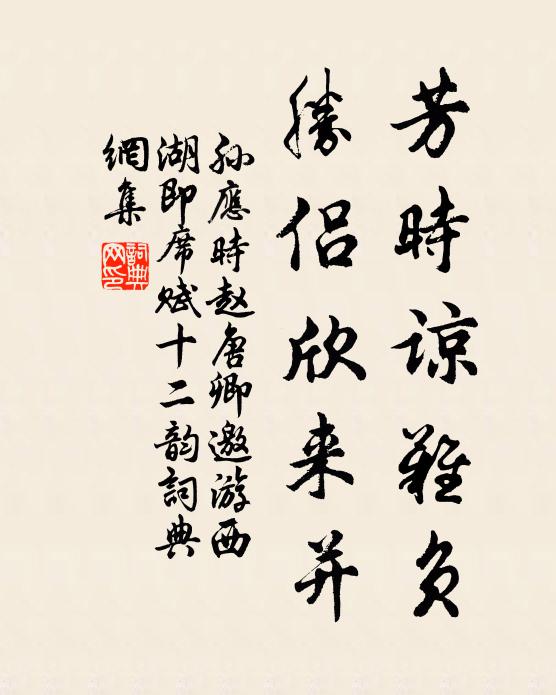 芳時谅難負
勝侣欣来并
孙應時赵唐卿邀游西
湖即席赋十二韵詞典
網集
詞典网印